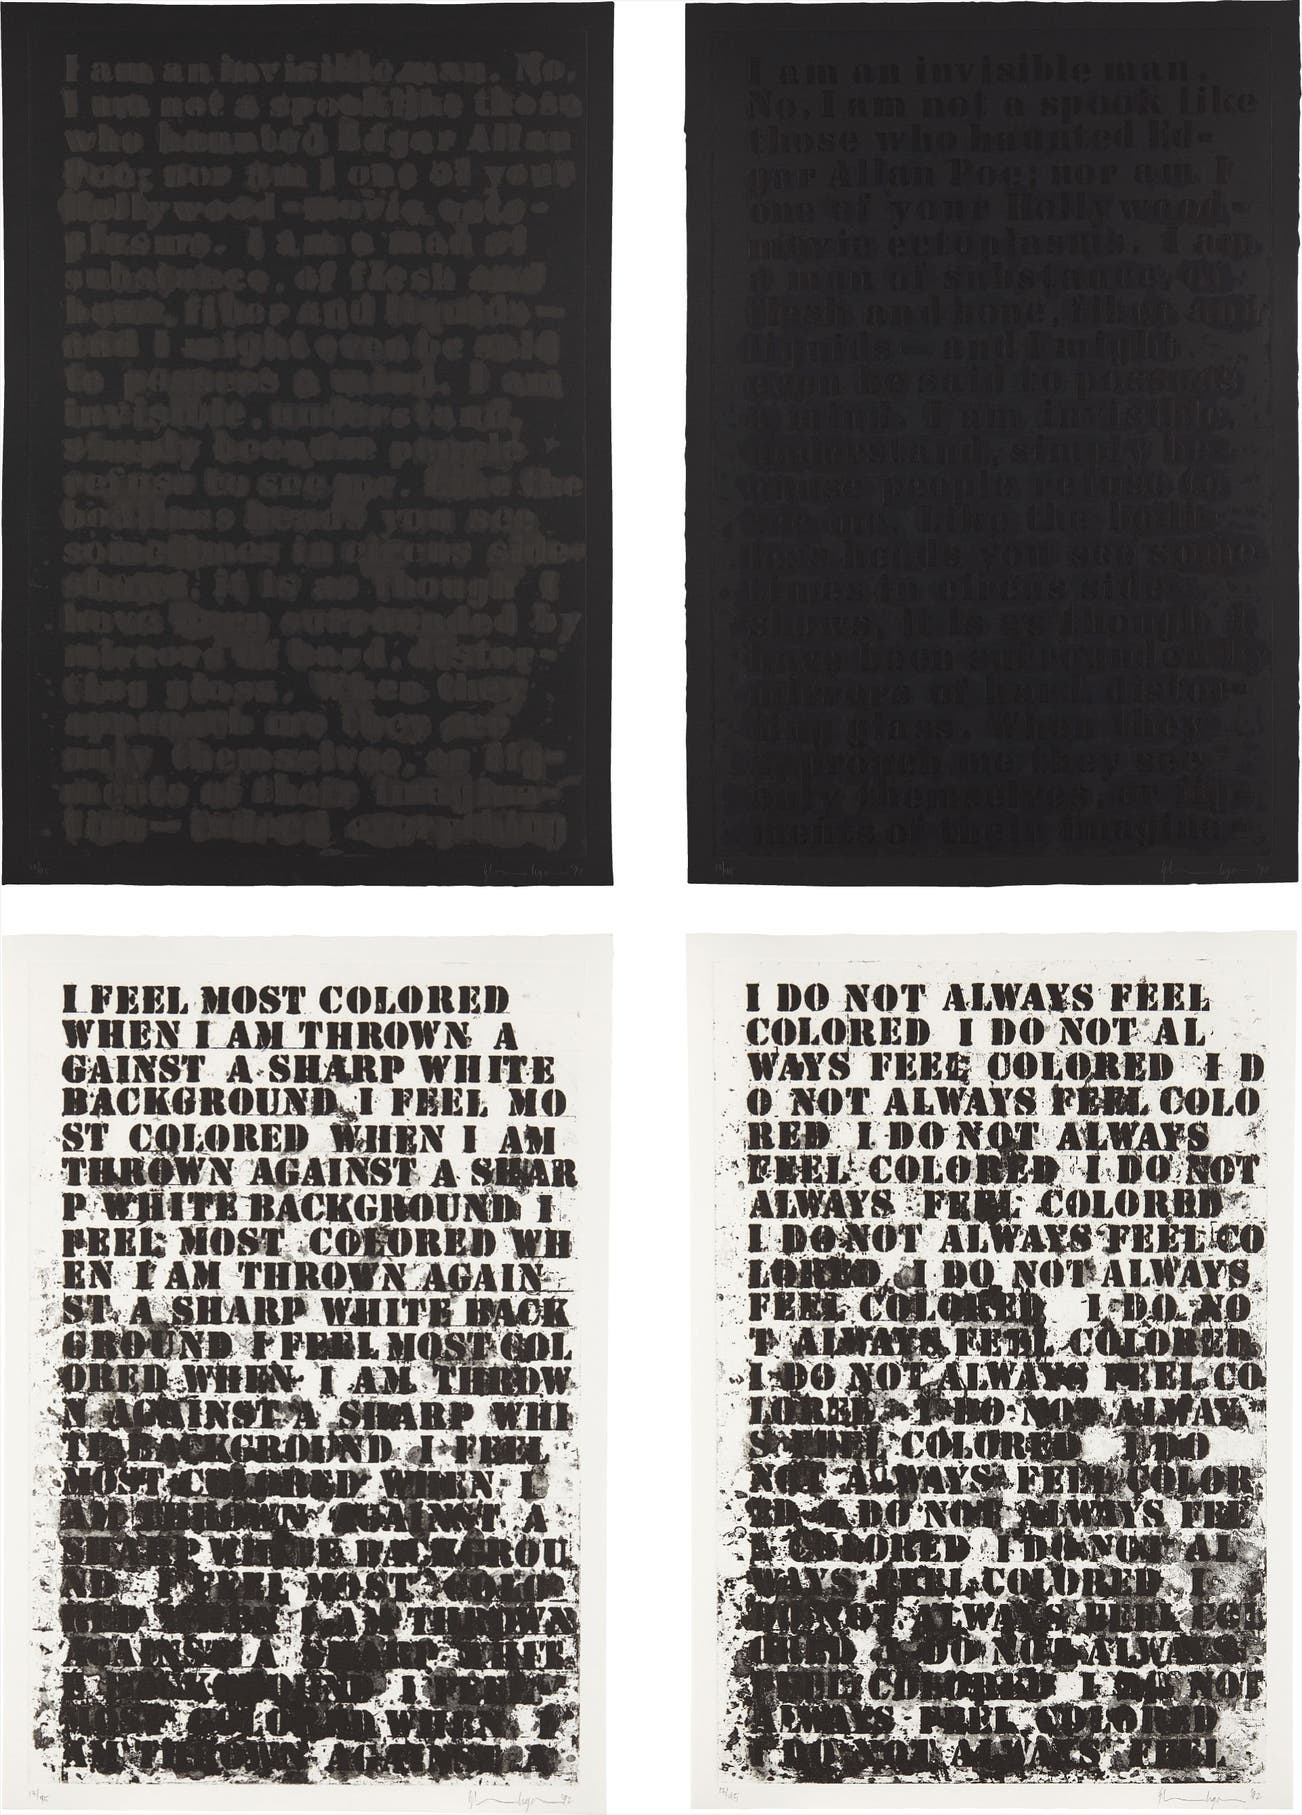 I am an invisible man. No,
I am not a spook like those
who haunted Edgar Allan
Poe; nor am I one of your
Hollywood-movie ecto-
plasms. I am a man of
substance, of flesh and
bone, fiber and liquids—
and I might even be said
to possess a mind. I am
invisible, understand,
simply because people
refuse to see me. Like the
bodiless heads you see
sometimes in circus side-
shows, it is as though I
have been surrounded by
mirrors of hard, distor-
they
only themselves, or fig-
ments of their imagina-
I am an invisible man.
No, I am not a spook like
those who haunted Ed-
gar Allan Poe; nor am I
one of your Hollywood-
movie ectoplasms. I am
a man of substance, of
flesh and bone, fiber and
liquids — and I might
even be said to possess
a mind. I am invisible,
understand, simply bec
ause people refuse to
see me. Like the bodi-
less heads you see some
times in circus side-
shows, it is as though I
have been surrounded by
mirrors of hard, distor-
ting glass. When they
approach me they see
only themselves, or fig-
ments of their imagina-
I FEEL MOST COLORED
WHEN I AM THROWN A
GAINST A SHARP WHITE
BACKGROUND I FEEL MO
ST COLORED WHEN I AM
THROWN AGAINST A SHAR
P WHITE BACKGROUND I
FEEL MOST COLORED WH
EN I AM THROWN AGAIN
ST A SHARP WHITE BACK
GROUND I FEEL MOST COL
ORED WHEN I AM THROW
N AGAINST A SHARP WHI
TE BACKGROUND I FEEL
MOST COLORED WHEN I
AM THROWN AGAINST A
SHARP WHITE BACKGROU
ND I FEEL MOST COLO
RED WHEN I AM THROWN
AGAINST A SHARP WHIT
E BACKGROUND I FEEL
MOST COLORED WHEN I
AM THROWN AGAINST A
'92
I DO NOT ALWAYS FEEL
COLORED I DO NOT AL
WAYS FEEL COLORED I D
O NOT ALWAYS FEEL COLO
RED I DO NOT ALWAYS
FEEL COLORED I DO NOT
ALWAYS FEEL COLORED
I DO NOT ALWAYS FEEL CO
LORED I DO NOT ALWAYS
FEEL COLORED I DO NO
T ALWAYS FEEL COLORED
I DO NOT ALWAYS FEEL CO
LORED I DO NOT ALWAY
S FEEL COLORED I DO
NOT ALWAYS FEEL COLOR
ED I DO NOT ALWAYS FEE
L COLORED I DO NOT AL
WAYS FEEL COLORED I
DO NOT ALWAYS FEEL COL
ORED I DO NOT ALWAYS
FEEL COLORED I DO NOT
ALWAYS FEEL COLORED
I DO NOT ALWAYS FEEL
'92